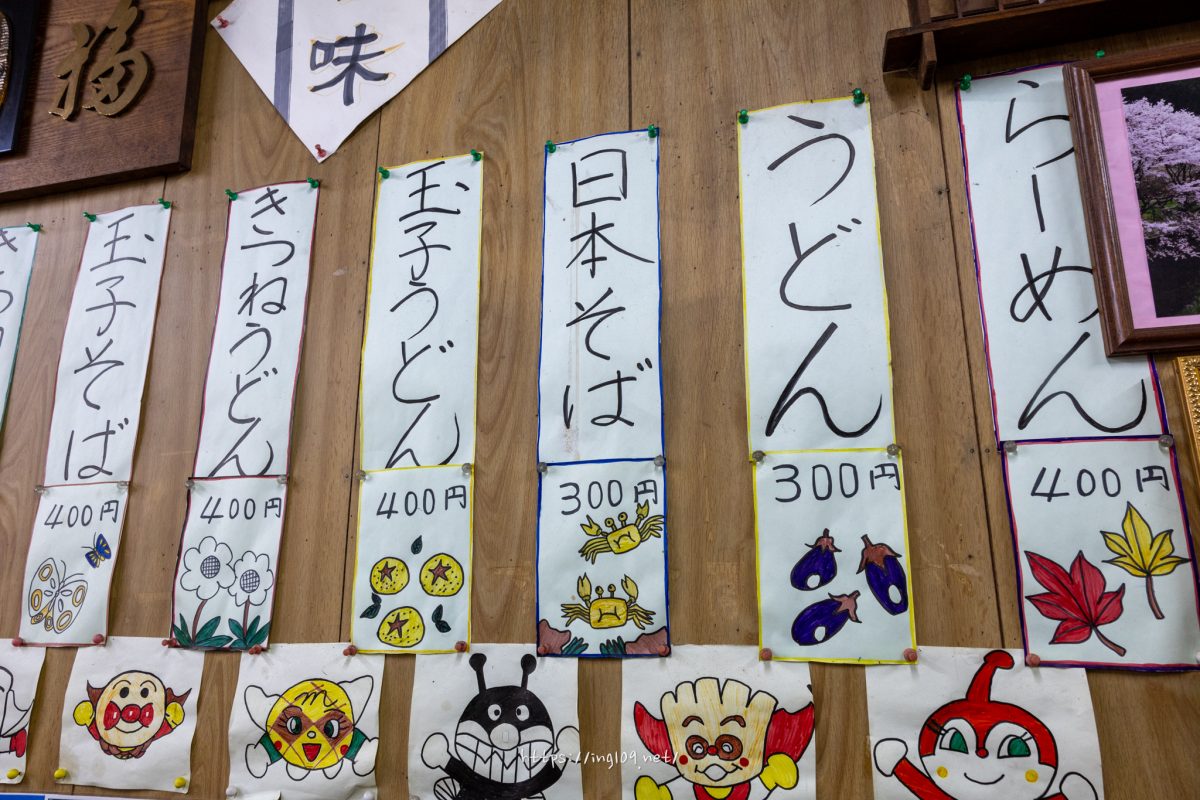 福
味
らーめん
400円
うどん
300円
日本そば
300円
玉子うどん
400円
きつねうどん
400円
玉子そば
400円
m
https://ing109.net/